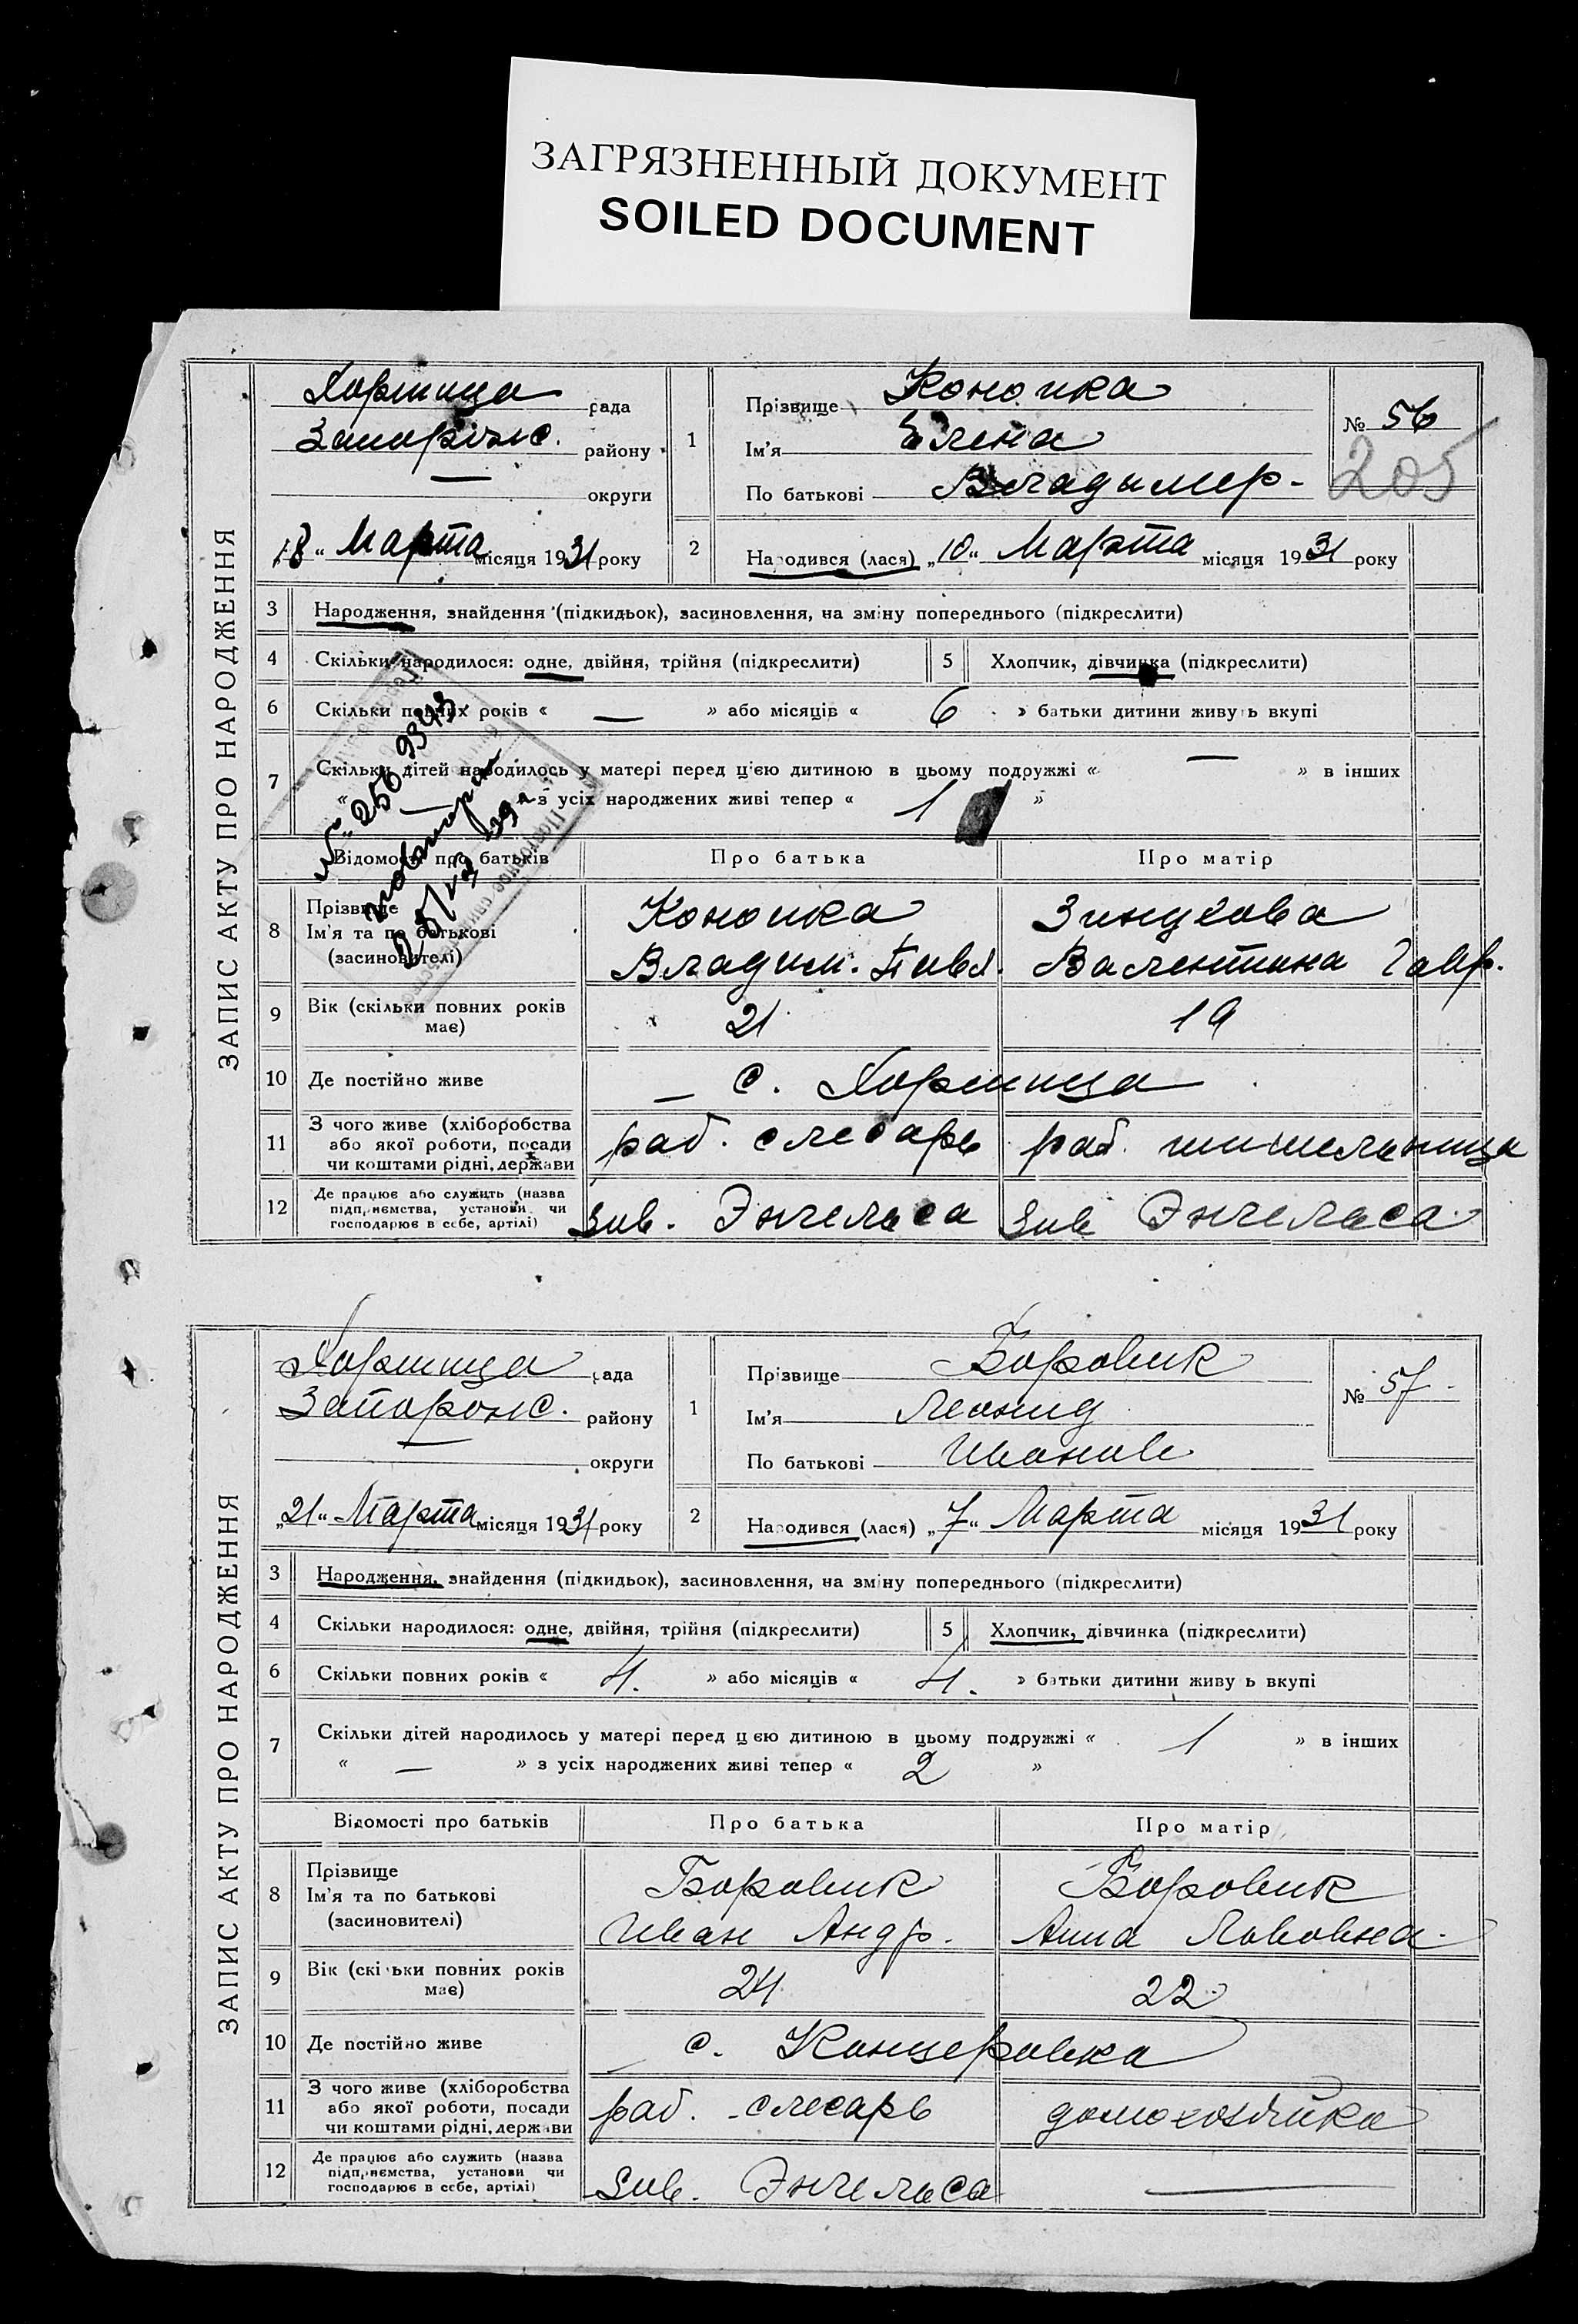 ЗАГРЯЗНЕННЫЙ ДОКУМЕНТ
SOILED DOCUMENT
ЗАПИС АКТУ ПРО НАРОДЖЕННЯ
Хортица рада
Запорожс. району
— округи
18 " Марта місяця 1931 року
1 Прізвище Конопка
Ім'я Елена
По батькові Владимер-
№ 56
205
2 Народився (лася) „10" Марта місяця 1931 року
3 Народження, знайдення (підкидьок), засиновлення, на зміну попереднього (підкреслити)
4 Скільки народилося: одне, двійня, трійня (підкреслити) 5 Хлопчик, дівчинка (підкреслити)
6 Скільки повних років « — » або місяців « 6 » батьки дитини живуть вкупі
7 Скільки дітей народилось у матері перед цією дитиною в цьому подружжі « — » в інших
« — » з усіх народжених живі тепер « 1 »
№ 2569343
повторн
Відомості про батьків Про батька Про матір
8 Прізвище Ім'я та по батькові (засиновителі)
Конопка
Владим. Павл.
Валентина Гавр.
9 Вік (скільки повних років має) 21 19
10 Де постійно живе с. Хортица
11 З чого живе (хліборобства або якої роботи, посади чи коштами рідні, держави раб. слесарь раб.
12 Де працює або служить (назва підприємства, установи чи господарює в себе, артілі) Зав. Энгельса Зав Энгельса
ЗАПИС АКТУ ПРО НАРОДЖЕННЯ
Хортица рада
Запорожс. району
— округи
„21" Марта місяця 1931 року
1 Прізвище Боровик
Ім'я Леонид
По батькові Иванов
№ 57
2 Народився (лася) „7" Марта місяця 1931 року
3 Народження, знайдення (підкидьок), засиновлення, на зміну попереднього (підкреслити)
4 Скільки народилося: одне, двійня, трійня (підкреслити) 5 Хлопчик, дівчинка (підкреслити)
6 Скільки повних років « 4. » або місяців « 4. » батьки дитини живу ь вкупі
7 Скільки дітей народилось у матері перед цією дитиною в цьому подружжі « 1 » в інших
« — » з усіх народжених живі тепер « 2 »
Відомості про батьків Про батька Про матір
8 Прізвище Ім'я та по батькові (засиновителі)
Боровик Боровик
Иван Андр. Анна Якововна
9 Вік (скільки повних років має) 24 22
10 Де постійно живе с. Канцеровка
11 З чого живе (хліборобства або якої роботи, посади чи коштами рідні, держави раб. слесарь домохозяйка
12 Де працює або служить (назва підприємства, установи чи господарює в себе, артілі) Зав. Энгельса —